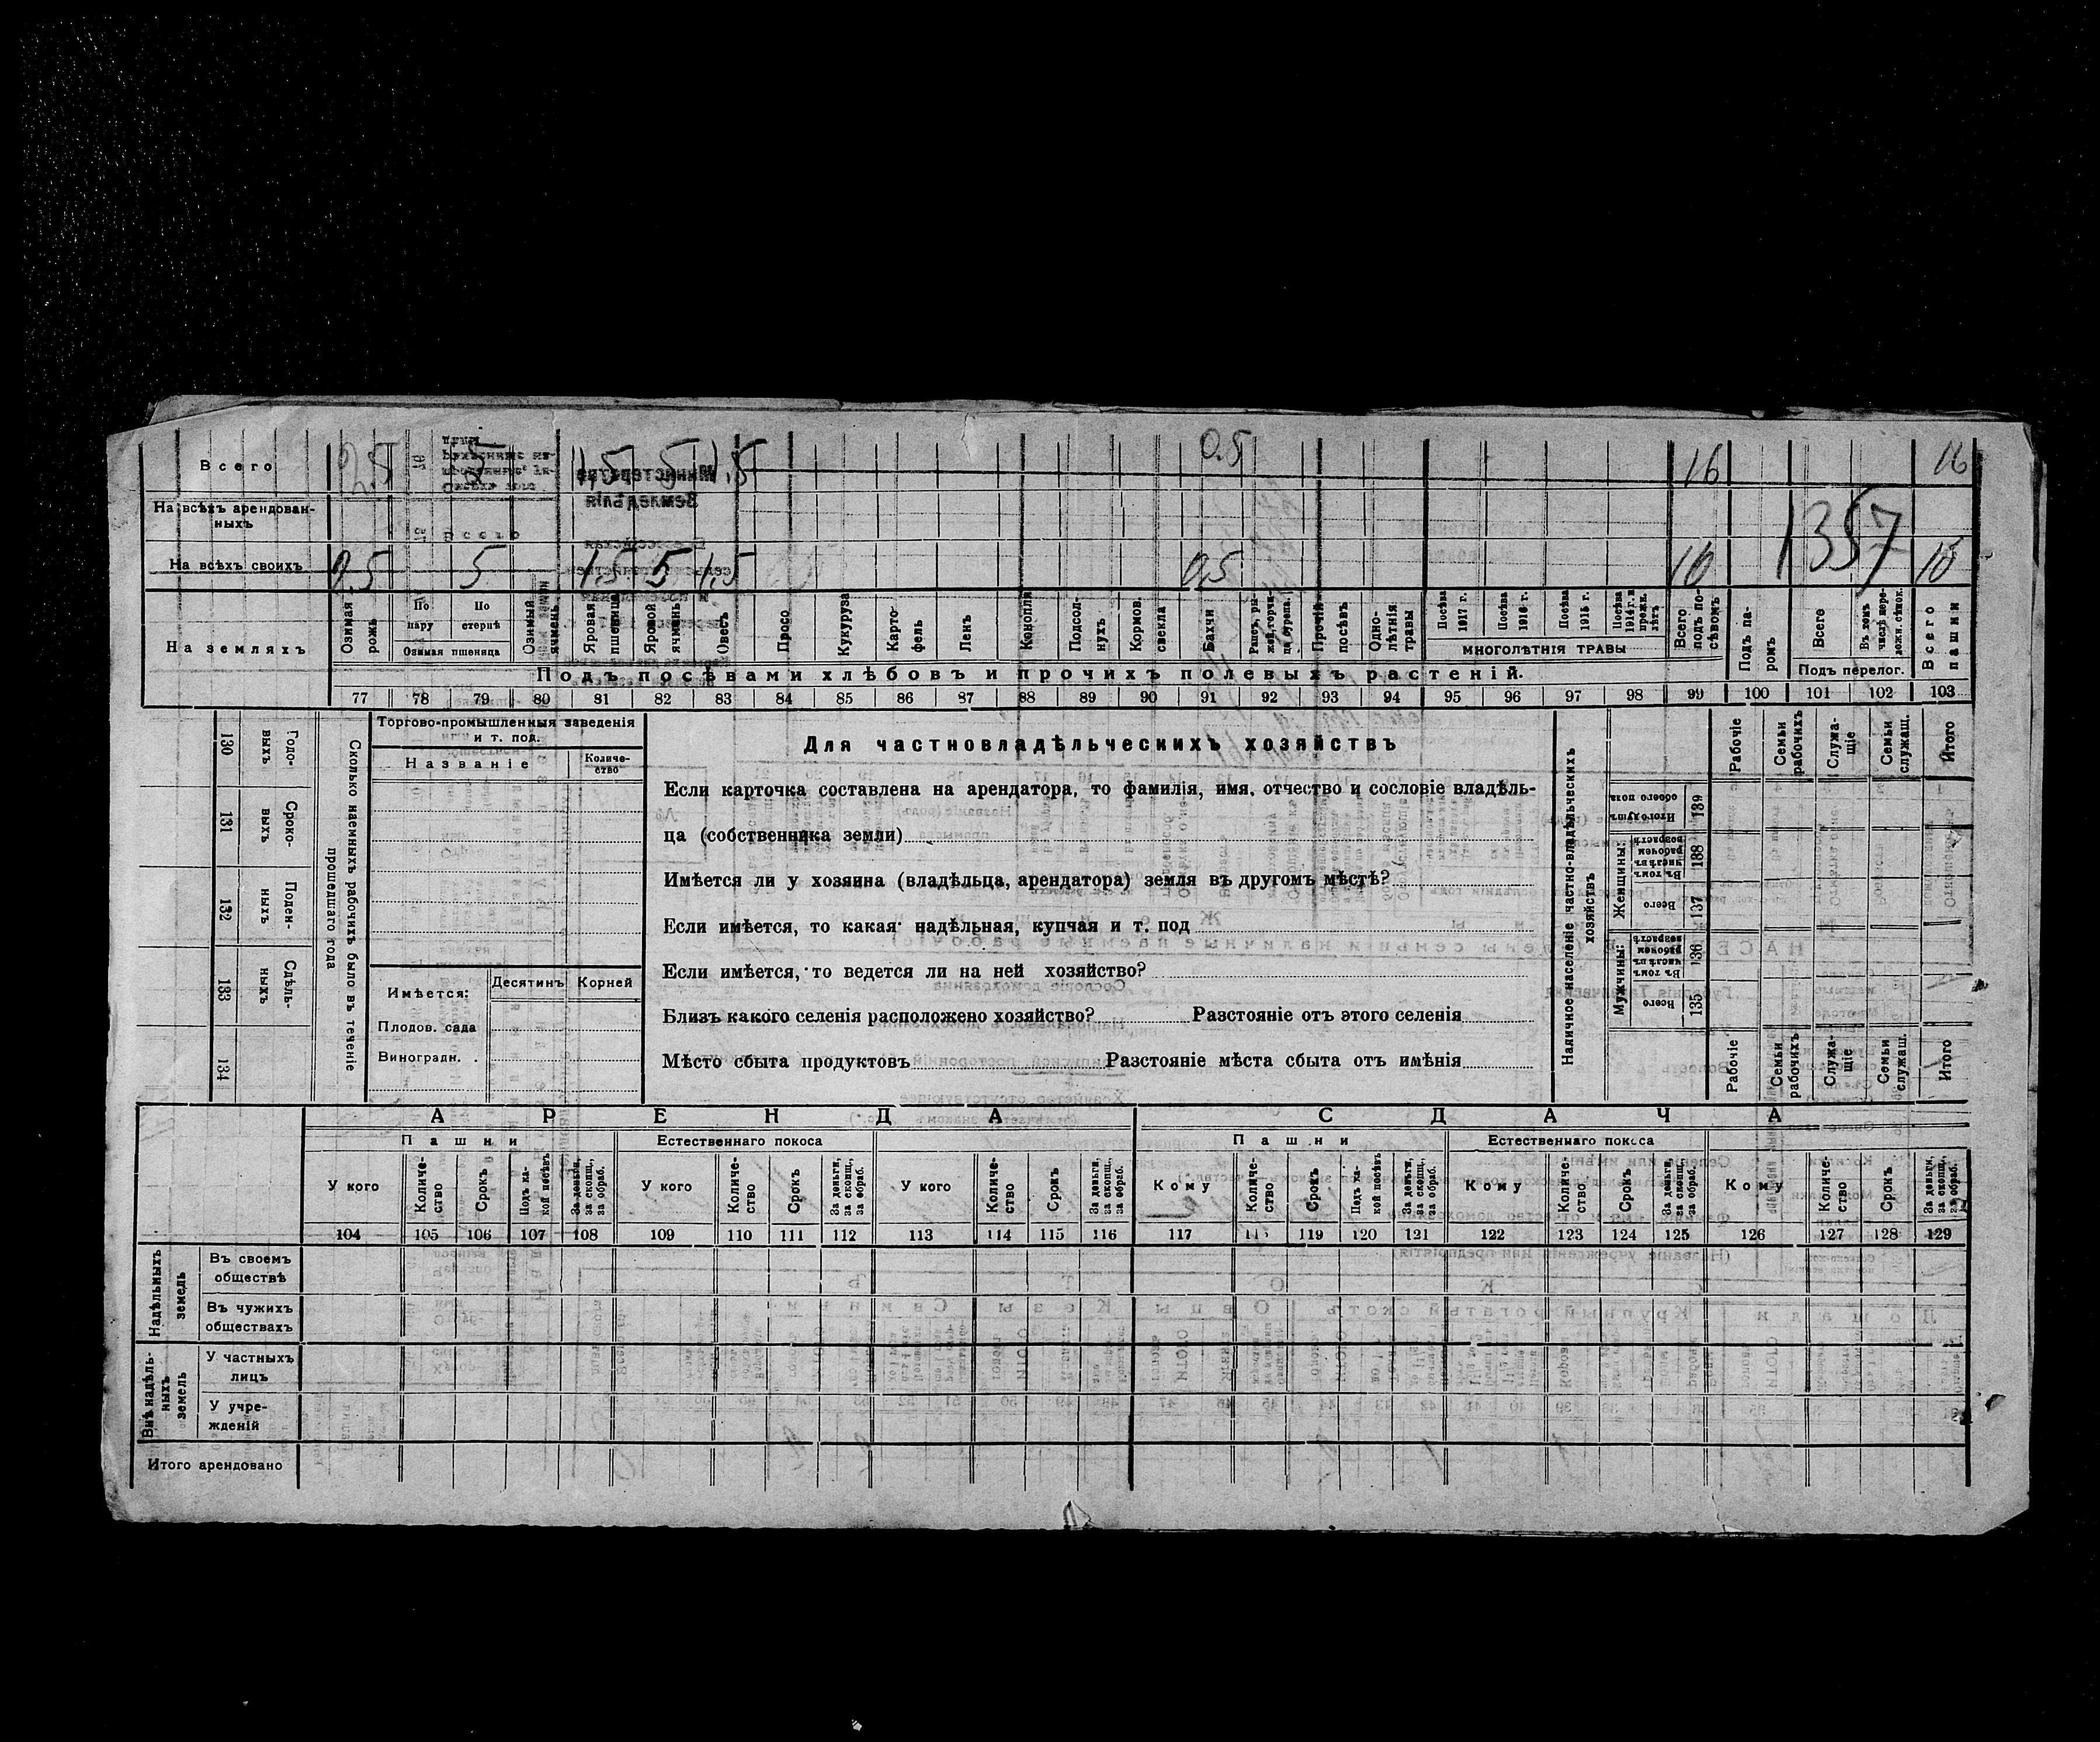 Всего 2.5 5 1,5 5 1,5 0.5 16 16
На всѣхъ арендован-
ныхъ
1357
На всѣхъ своихъ 5 1,5 5 1,5 0,5
На земляхъ
Озимая рожь
По пару
По стернѣ
Озимая пшеница
Озимый ячмень
Яровая пшеница
Яровой ячмень
Овесъ
Просо
Кукуруза
Карто-
фель
Ленъ
Конопли
Подсол-
нухъ
Кормов.
свекла
Бахчи
Рапсъ, ры-
жей, горчи-
ца, сурепа.
Прочій
посѣвъ
Одно-
лѣтнія
травы
Посѣва
1917 г.
Посѣва
1916 г.
Посѣва
1915 г.
Посѣва
1914 г. и
прежн.
лѣтъ
МНОГОЛѢТНІЯ ТРАВЫ
Всего
подъ по-
сѣвомъ
Подъ па-
ромъ
Всего
Въ томъ
числѣ пере-
ложн. сѣнок.
Подъ перелог.
Всего
пашни
Подъ посѣвами хлѣбовъ и прочихъ полевыхъ растеній.
77 78 79 80 81 82 83 84 85 86 87 88 89 90 91 92 93 94 95 96 97 98 99 100 101 102 103
130 Годо-
выхъ
131 Сроко-
выхъ
132 Поден-
ныхъ
133 Сдѣль-
ныхъ
134
Сколько наемныхъ рабочихъ было въ теченіе
прошедшаго года
Торгово-промышленныя заведенія
и т. под.
Названіе
Количе-
ство
Имѣется: Десятинъ Корней
Плодов. сада
Виноградн.
Для частновладѣльческихъ хозяйствъ
Если карточка составлена на арендатора, то фамилія, имя, отчество и сословіе владѣль-
ца (собственника земли)
Имѣется ли у хозяина (владѣльца, арендатора) земля въ другомъ мѣстѣ?
Если имѣется, то какая надѣльная, купчая и т. под
Если имѣется, то ведется ли на ней хозяйство?
Близъ какого селенія расположено хозяйство? Разстояніе отъ этого селенія
Мѣсто сбыта продуктовъ Разстояніе мѣста сбыта отъ имѣнія
Наличное населеніе частно-владѣльческихъ
хозяйствъ
Рабочіе
Семьи
рабочихъ
Служа-
щіе
Семьи
служащ.
Итого
Итого душъ
обоего пола
139
Женщины:
Въ томъ
числѣ въ
рабочем
возрастѣ
138
Всего
137
Мужчины:
Въ томъ
числѣ въ
рабочем
возрастѣ
136
Всего
135
Рабочіе
Семьи
рабочихъ
Служа-
щіе
Семьи
служащ.
Итого
АРЕНДА СДАЧА
Пашни Естественнаго покоса Пашни Естественнаго покоса
У кого
Количе-
ство
Срокъ
Подъ ка-
кой посѣвъ
За деньги,
за скопщ.,
за обраб.
У кого
Количе-
ство
Срокъ
За деньги,
за скопщ.,
за обраб.
У кого
Количе-
ство
Срокъ
За деньги,
за скопщ.,
за обраб.
Кому
Количе-
ство
Срокъ
Подъ ка-
кой посѣвъ
За деньги,
за скопщ.,
за обраб.
Кому
Количе-
ство
Срокъ
За деньги,
за скопщ.,
за обраб.
Кому
Количе-
ство
Срокъ
За деньги,
за скопщ.,
за обраб.
104 105 106 107 108 109 110 111 112 113 114 115 116 117 118 119 120 121 122 123 124 125 126 127 128 129
Надѣльныхъ
земель
Въ своемъ
обществѣ
Въ чужихъ
обществахъ
Внѣ надѣль-
ныхъ
земель
У частныхъ
лицъ
У учре-
жденій
Итого арендовано